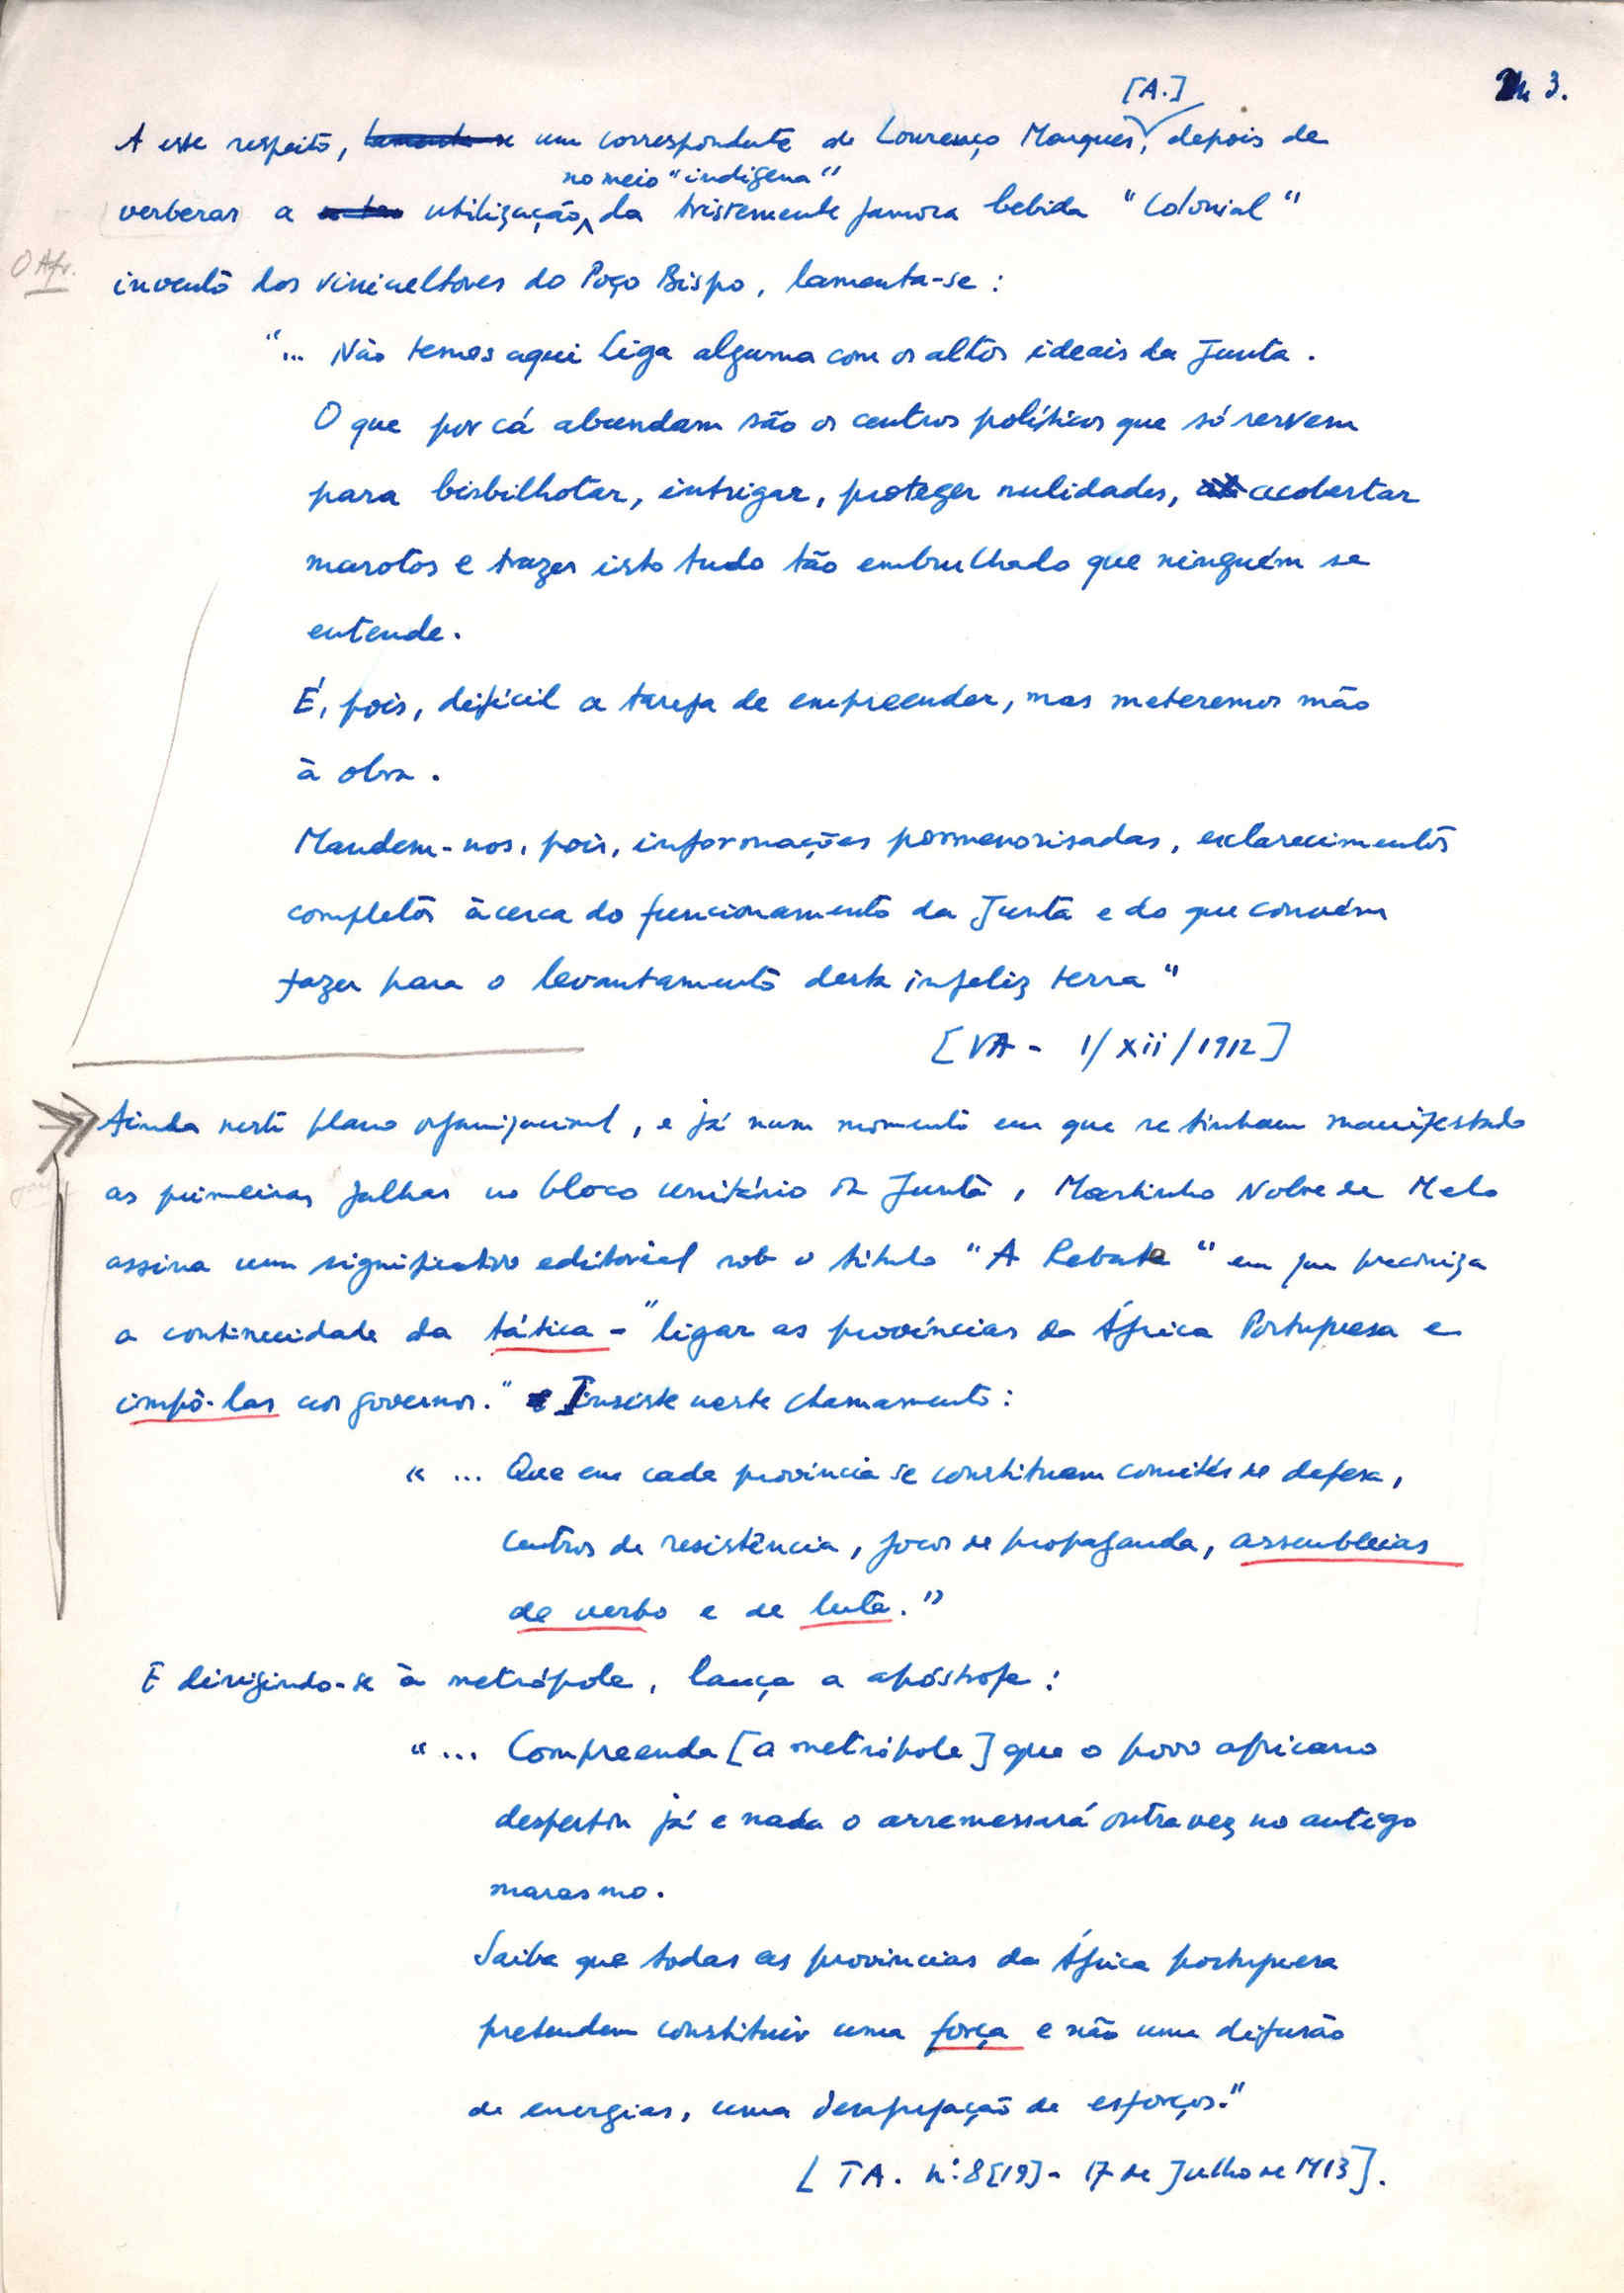 3.
[A.]
A esse respeito, um correspondente de Lourenço Marques, depois de
no meio "indígena"
verberar a utilização da tristemente famosa bebida "Colonial"
O Afr.
invento dos vinicultores do Poço Bispo, lamenta-se:
"... Não temos aqui Liga alguma com os altos ideais da Junta.
O que por cá abundam são os centros políticos que só servem
para bisbilhotar, intrigar, proteger nulidades, acobertar
marotos e trazer isto tudo tão embrulhado que ninguém se
entende.
É, pois, difícil a tarefa de empreender, mas meteremos mão
à obra.
Mandem-nos, pois, informações pormenorisadas, esclarecimentos
completos àcerca do funcionamento da Junta e do que convém
fazer para o levantamento desta infeliz terra"
[VA - 1/xii/1912]
Ainda neste plano organizacional, e já num momento em que se tinham manifestado
as primeiras falhas no bloco unitário da Junta, Martinho Nobre de Melo
assina um significativo editorial sob o título "A Rebate" em que preconiza
a continuidade da tática - "ligar as províncias da África Portuguesa e
impô-las aos governos." Insiste neste chamamento:
"... Que em cada província se constituam comités de defesa,
centros de resistência, focos de propaganda, assembleias
de verbo e de luta."
E dirigindo-se à metrópole, lança a apóstrofe:
"... Compreenda [a metrópole] que o povo africano
despertou já e nada o arremessará outra vez no antigo
marasmo.
Saiba que todas as províncias da África portuguesa
pretendem constituir uma força e não uma difusão
de energias, uma desagregação de esforços."
[TA. nº 8[19] - 17 de Julho de 1913].